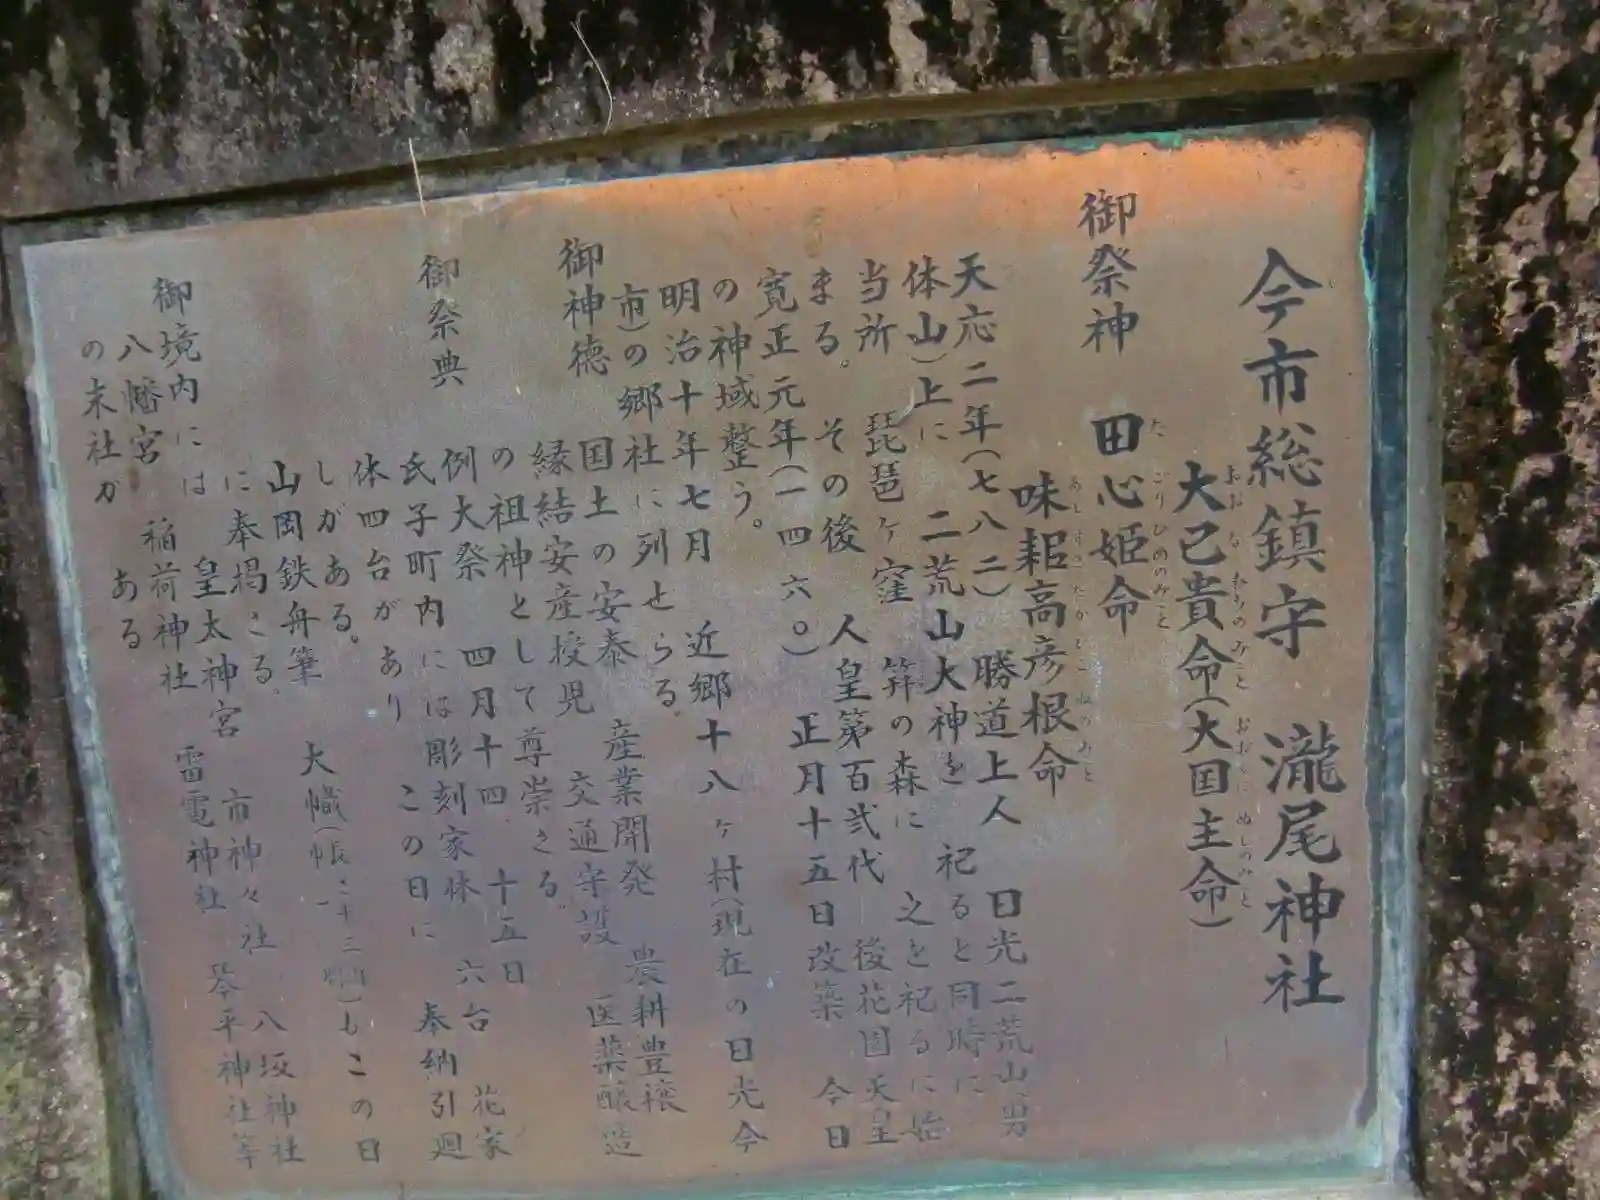 今市総鎮守　瀧尾神社
大己貴命(大国主命)
御祭神　田心姫命
味耜高彦根命
天応二年(七八二)勝道上人　日光二荒山(男
体山)上に　二荒山大神を　祀ると同時に
当所　琵琶ヶ窪　笄の森に　之を祀るに始
まる。　その後　人皇第百弐代　後花園天皇
寛正元年(一四六〇)正月十五日改築　今日
の神域整う。
明治十年七月　近郷十八ヶ村(現在の日光今
市)の郷社に列せらる。
御神徳　国土の安泰　産業開発　農耕豊穣
縁結安産授児　交通守護　医薬醸造
の祖神として尊崇さる。
御祭典　例大祭　四月十四、十五日
氏子町内には彫刻家体　六台　花家
体四台があり　この日に　奉納引廻
しがある。
山岡鉄舟筆　大幟(帳二十三幅)もこの日
に奉掲さる。
御境内には　皇太神宮　市神々社　八坂神社
八幡宮　稲荷神社　雷電神社　琴平神社等
の末社が　ある